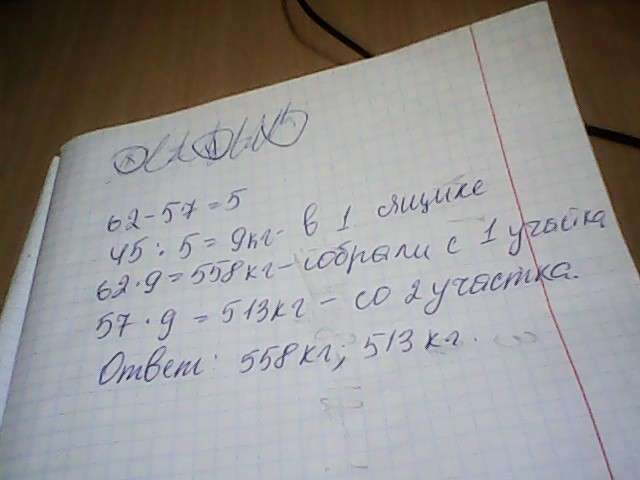 62-57=5
45:5=9кг- в 1 ящике
62·9=558кг-собрали с 1 участка
57·9=513кг- со 2 участка.
Ответ: 558кг; 513кг.